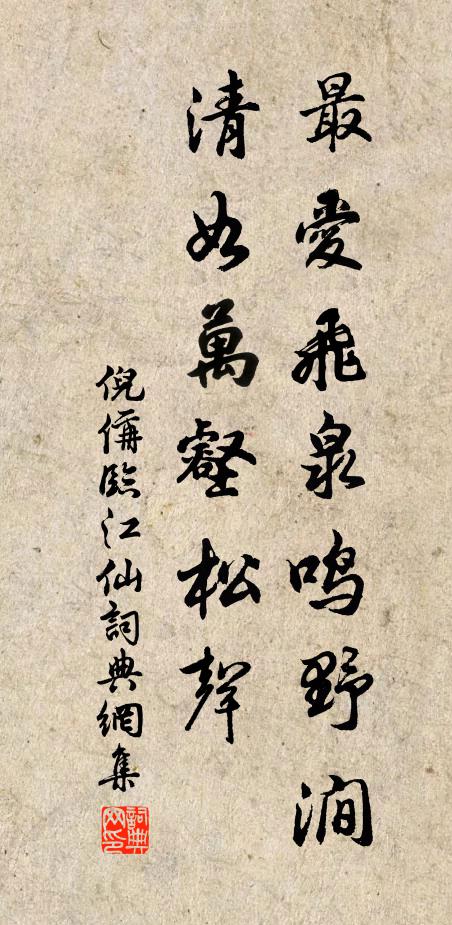 最愛飛泉鳴野澗
清如萬壑松聲
倪偁臨江仙詞典網集
詞典網印